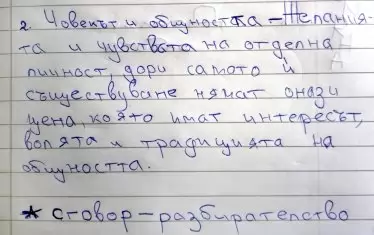 2. Човекът и общността - Желания-
та и чувствата на отделна
личност, дори самото ѝ
съществуване нямат онази
цена, която имат интересът,
волята и традицията на
общността.
* сговор - разбирателство